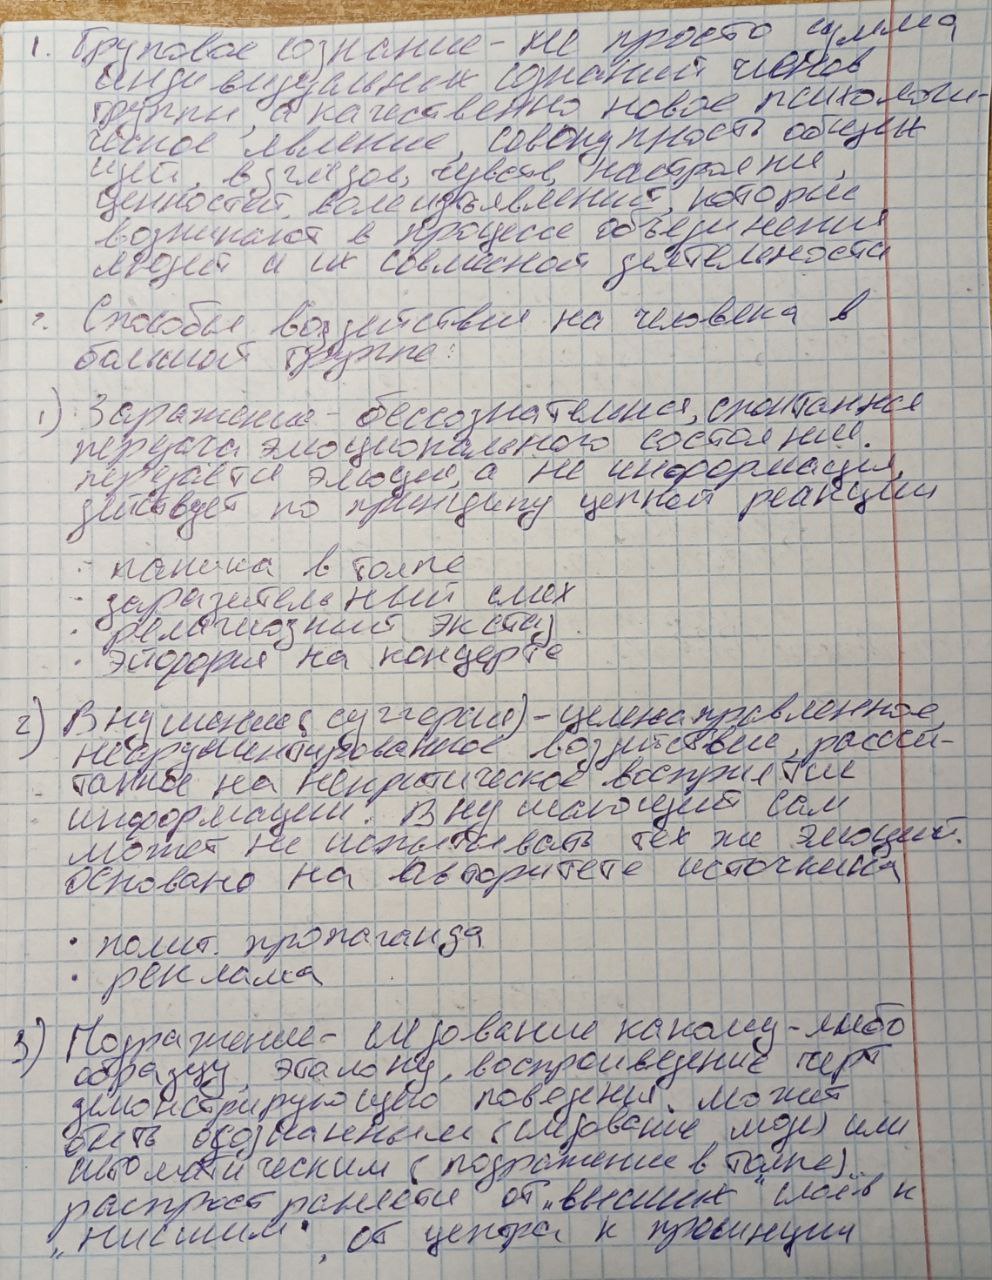 1. Груповое сознание - не просто сумма
индивидуальных сознаний членов
группы, а качественно новое психологи-
ческое явление, совокупность общих
идей, взглядов, чувств, настроений,
ценностей, волеизъявлений, которые
возникают в процессе объединения
людей и их совместной деятельности
2. Способы воздействия на человека в
большой группе:
1) Заражение - бессознательная, спонтанная
передача эмоционального состояния.
передается эмоция, а не информация,
действует по принципу цепной реакции
· паника в толпе
· заразительный смех
· религиозный экстаз
· эйфория на концерте
2) Внушение (суггерия) - целенаправленное,
неаргументированное воздействие, рассчи-
танное на некритическое восприятие
информации. Внушающий сам
может не испытывать тех же эмоций.
основано на авторитете источника
· полит. пропаганда
· реклама
3) Подражение - следование какому-либо
образцу, эталону, воспроизведение черт
демонстрирующего поведения. может
быть осознанным (следование моде) или
автоматическим (подражение в толпе).
распространяется от „высших" слоёв к
„низшим", от центра к провинции